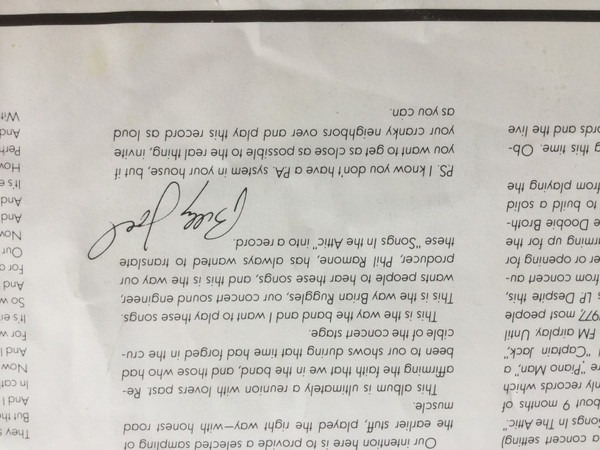 a concert setting)
Songs In The Attic."
9 months of
records which
"Piano Man," a
"Captain Jack,"
FM airplay. Until
1977, most people
LP. Despite this,
from concert au-
or opening for
for the
Doobie Broth-
to build a solid
from playing the
this time. Ob-
and the live
Our intention here is to provide a selected sampling of
the earlier stuff, played the right way—with honest road
muscle.
This album is ultimately a reunion with lovers past. Re-
affirming the faith that we in the band, and those who had
been to our shows during that time had forged in the cru-
cible of the concert stage.
This is the way the band and I want to play these songs.
This is the way Brian Ruggles, our concert sound engineer,
wants people to hear these songs, and this is the way our
producer, Phil Ramone, has always wanted to translate
these "Songs In the Attic" into a record.
Billy Joel
P.S. I know you don't have a P.A. system in your house, but if
you want to get as close as possible to the real thing, invite
your cranky neighbors over and play this record as loud
as you can.
They
But
And I
In
Now
And I
For
It's
So
And
For
Our
Now
And
And
It's
How
And